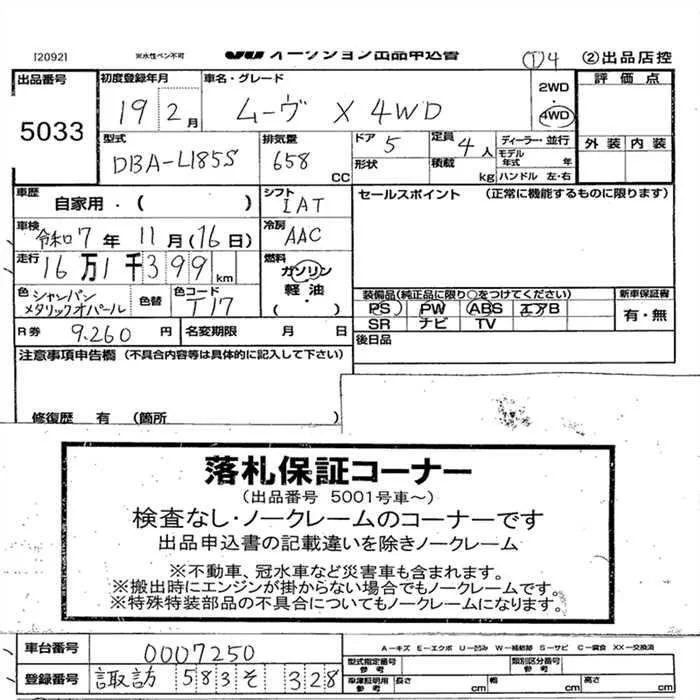 [2092] ※水性ペン不可 JU オークション出品申込書 ① 4 ②出品店控
出品番号 5033
初度登録年月 19 2月
車名・グレード ムーヴ X 4WD
2WD・4WD
評価点
外装 内装
型式 DBA-L185S
排気量 658 CC
ドア 5
形状
定員 4人
積載 kg
ディーラー・並行
モデル年式 年
ハンドル 左・右
車歴 自家用・( )
シフト IAT
セールスポイント (正常に機能するものに限ります)
車検 令和7年 11月(16日)
冷房 AAC
走行 16万1千399km
燃料 ガソリン 軽油・( )
色 シャンパンメタリックオパール
色替
色コード T17
装備品(純正品に限り○をつけてください)
PS PW ABS エアB
SR ナビ TV
新車保証書 有・無
R券 9.260円
名変期限 月 日
後日品
注意事項申告欄 (不具合内容等は具体的に記入して下さい)
修復歴 有 (箇所
落札保証コーナー
(出品番号 5001号車~)
検査なし・ノークレームのコーナーです
出品申込書の記載違いを除きノークレーム
※不動車、冠水車など災害車も含まれます。
※搬出時にエンジンが掛からない場合でもノークレームです。
※特殊特装部品の不具合についてもノークレームになります。
車台番号 0007250
A-キズ E-エクボ U-凹み W-補修跡 S-サビ C-腐食 XX-交換済
型式指定番号 参考
類別区分番号 参考
登録番号 諏訪 583 そ 328
車庫証明用 参考 長さ cm 幅 cm 高さ cm